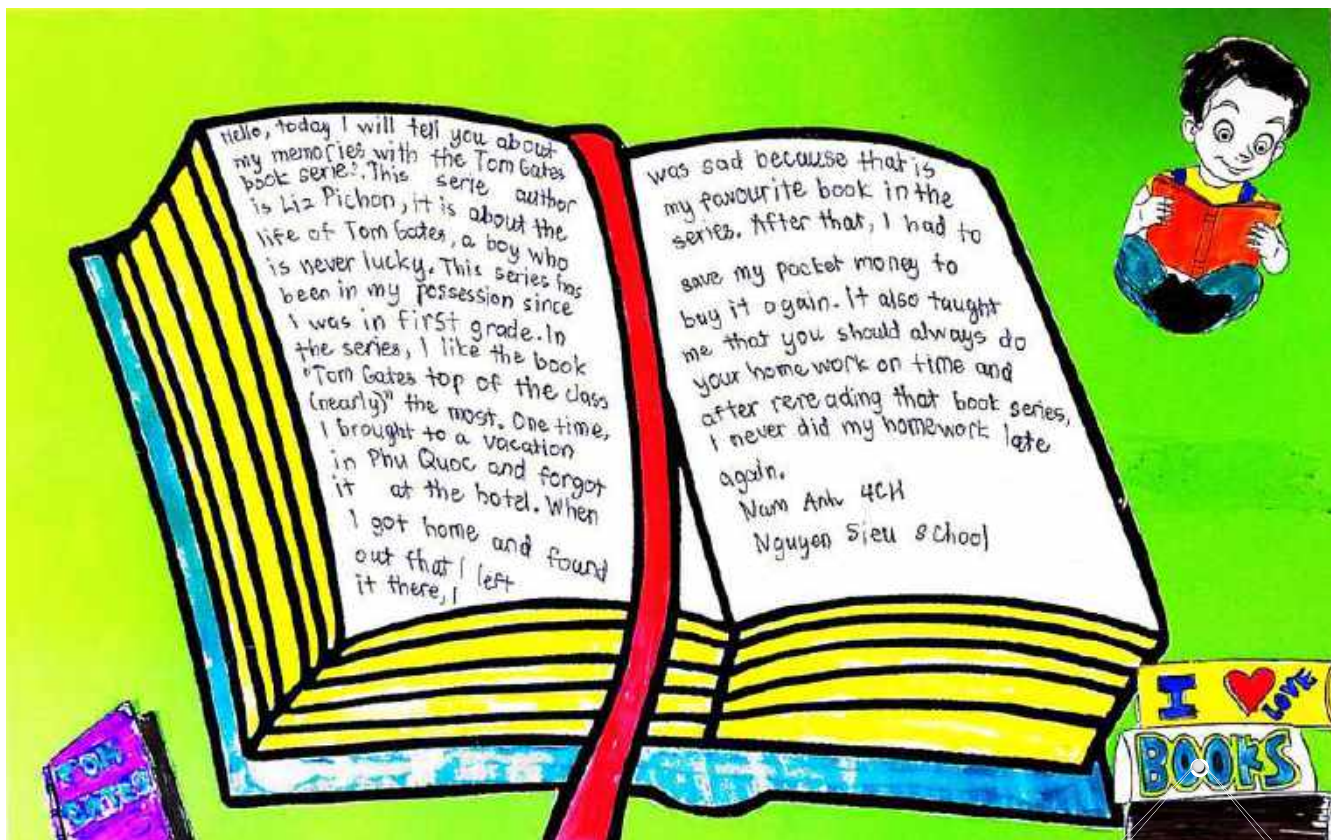 Hello, today I will tell you about
my memories with the Tom Gates
book series. This serie author
is Liz Pichon, it is about the
life of Tom Gates, a boy who
is never lucky. This series has
been in my possession since
I was in first grade. In
the series, I like the book
"Tom Gates top of the class
(nearly)" the most. One time,
I brought to a vacation
in Phu Quoc and forgot
it at the hotel. When
I got home and found
out that I left
it there, I
was sad because that is
my favourite book in the
series. After that, I had to
save my pocket money to
buy it again. It also taught
me that you should always do
your homework on time and
after rereading that book series,
I never did my homework late
again.
Nam Anh 4CH
Nguyen Sieu school
I LOVE
BOOKS
TOM
GATES